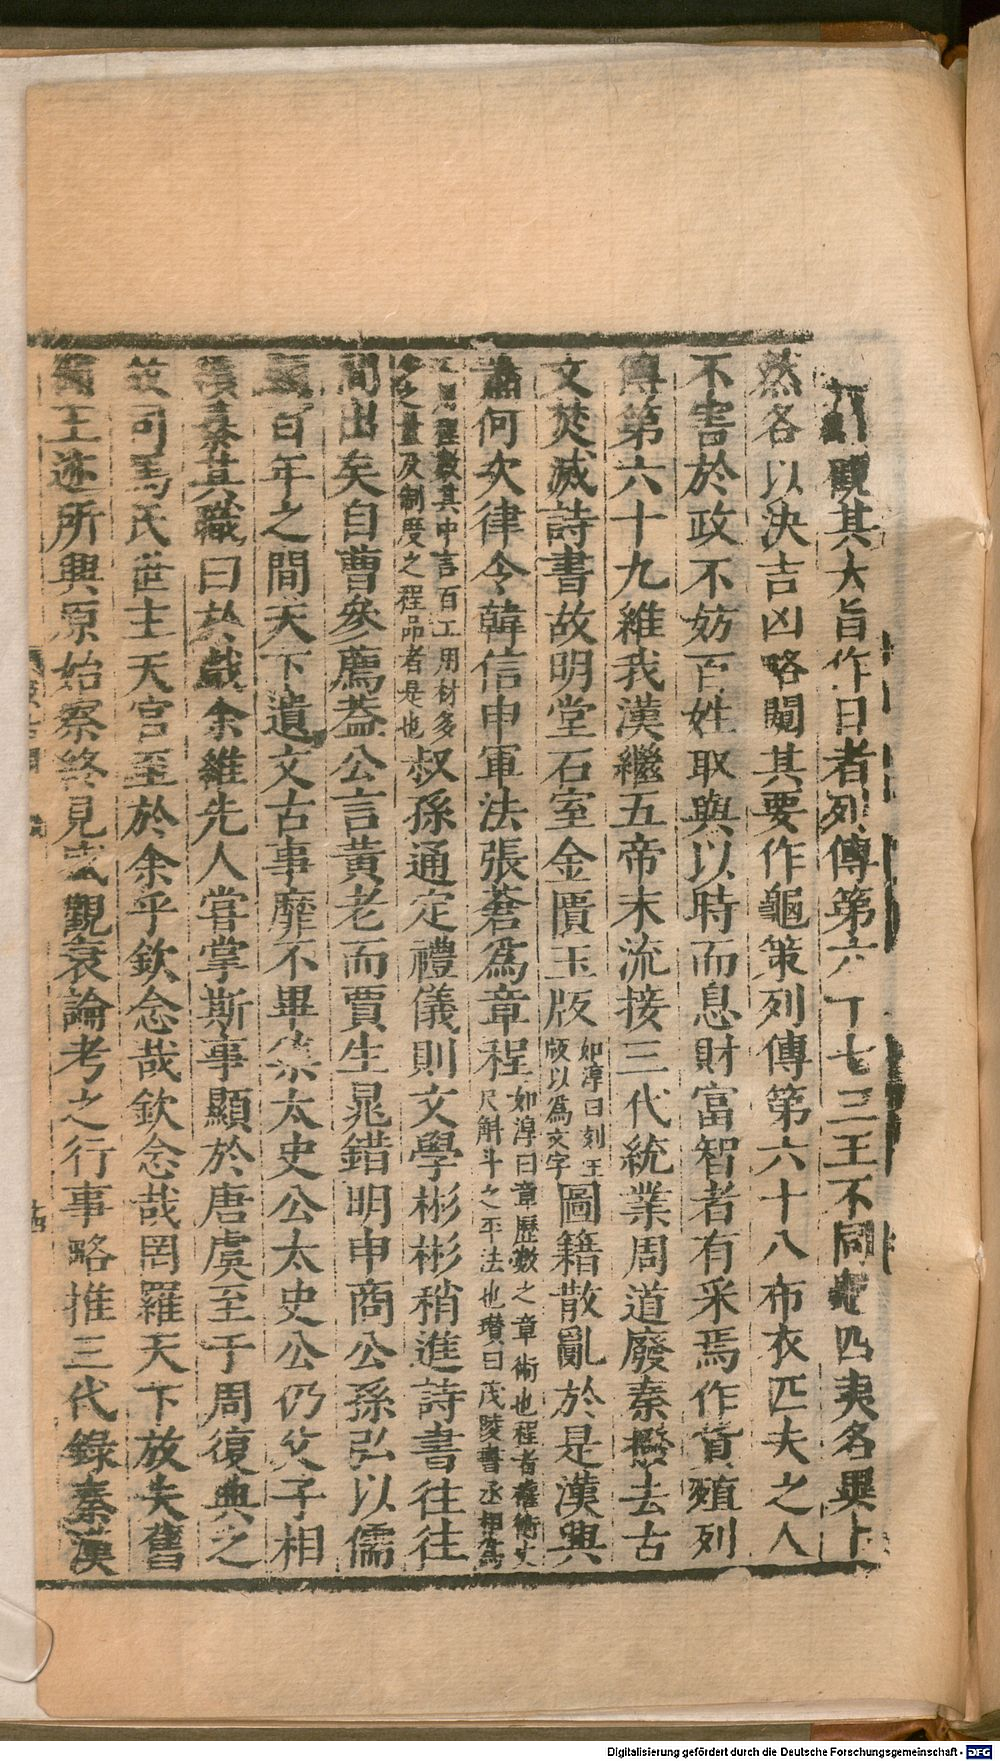 觀其大旨作日者列傳第六十七三王不同龜四夷各異卜
然各以決吉凶略闚其要作龜策列傳第六十八布衣匹夫之人
不害於政不妨百姓取與以時而息財富智者有采焉作貨殖列
傳第六十九維我漢繼五帝末流接三代統業周道廢秦撥去古
文焚滅詩書故明堂石室金匱玉版如淳曰刻玉版以為文字圖籍散亂於是漢興
蕭何次律令韓信申軍法張蒼為章程如淳曰章歷數之章術也程者權衡丈尺斛斗之平法也瓚曰茂陵書丞相為
工用程數其中言百工用材多少之量及制度之程品者是也叔孫通定禮儀則文學彬彬稍進詩書往往
間出矣自曹參薦蓋公言黃老而賈生晁錯明申商公孫弘以儒
顯百年之間天下遺文古事靡不畢集太史公太史公仍父子相
續纂其職曰於戲余維先人嘗掌斯事顯於唐虞至于周復典之
故司馬氏世主天官至於余乎欽念哉欽念哉罔羅天下放失舊
聞王迹所興原始察終見盛觀衰論考之行事略推三代錄秦漢
Digitalisierung gefördert durch die Deutsche Forschungsgemeinschaft - DFG